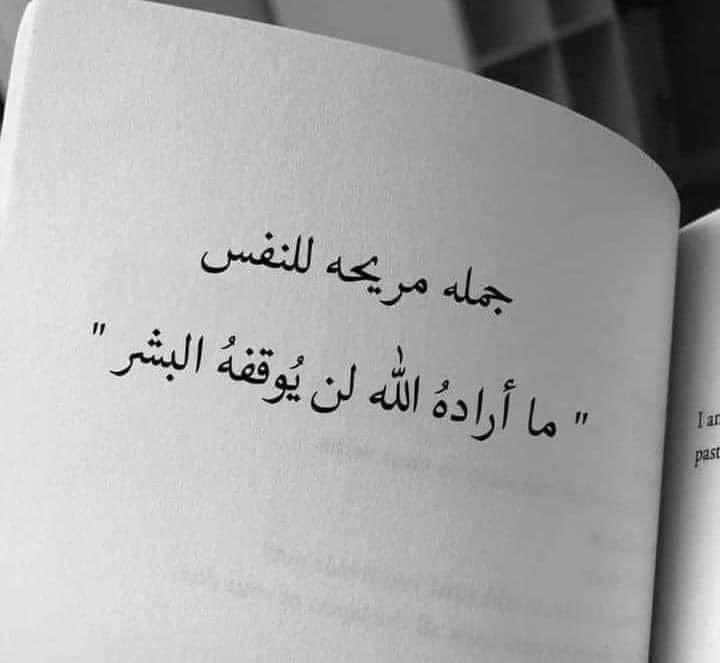 جمله مريحه للنفس
" ما أرادهُ الله لن يُوقفهُ البشر "
I
past